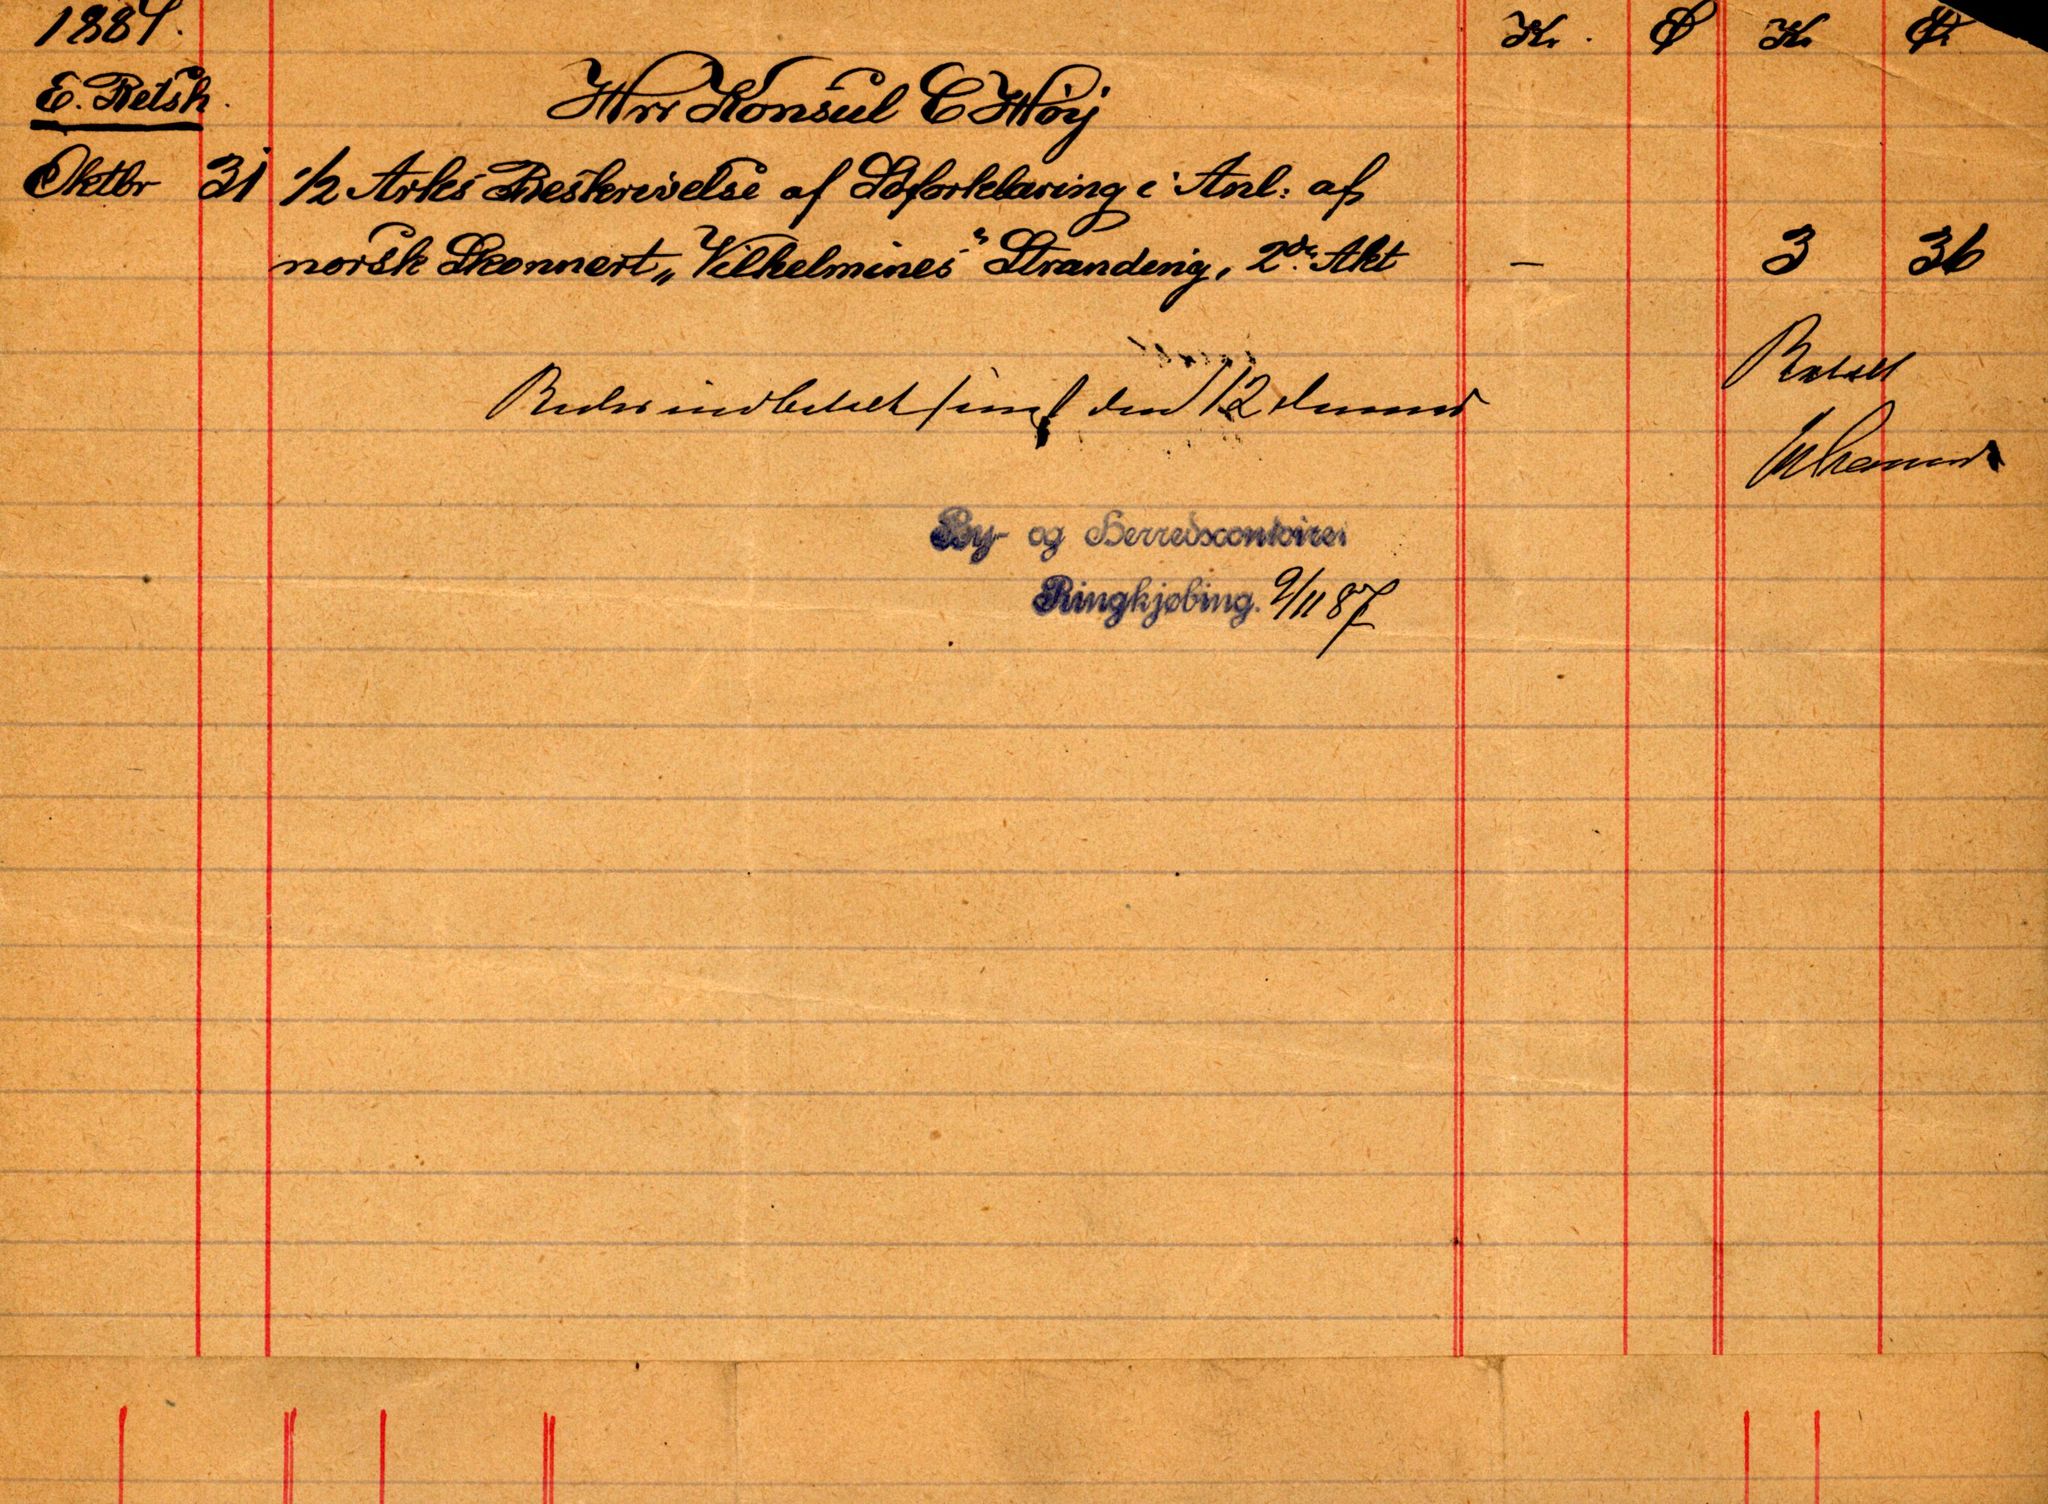 1887. Kr. Ø Kr Ø
E. Retsk.
Hrr Konsul C Høij
Oktbr 31 1/2 Arks Beskrivelse af Søforklaring i Anl: af
norsk Skonnert „Vilhelmines“ Stranding, 2de Akt — 3 36
Betalt
Bedes indbetalt inden den 12 dennes
By- og Herredscontoiret
Ringkjøbing. 9/11 87